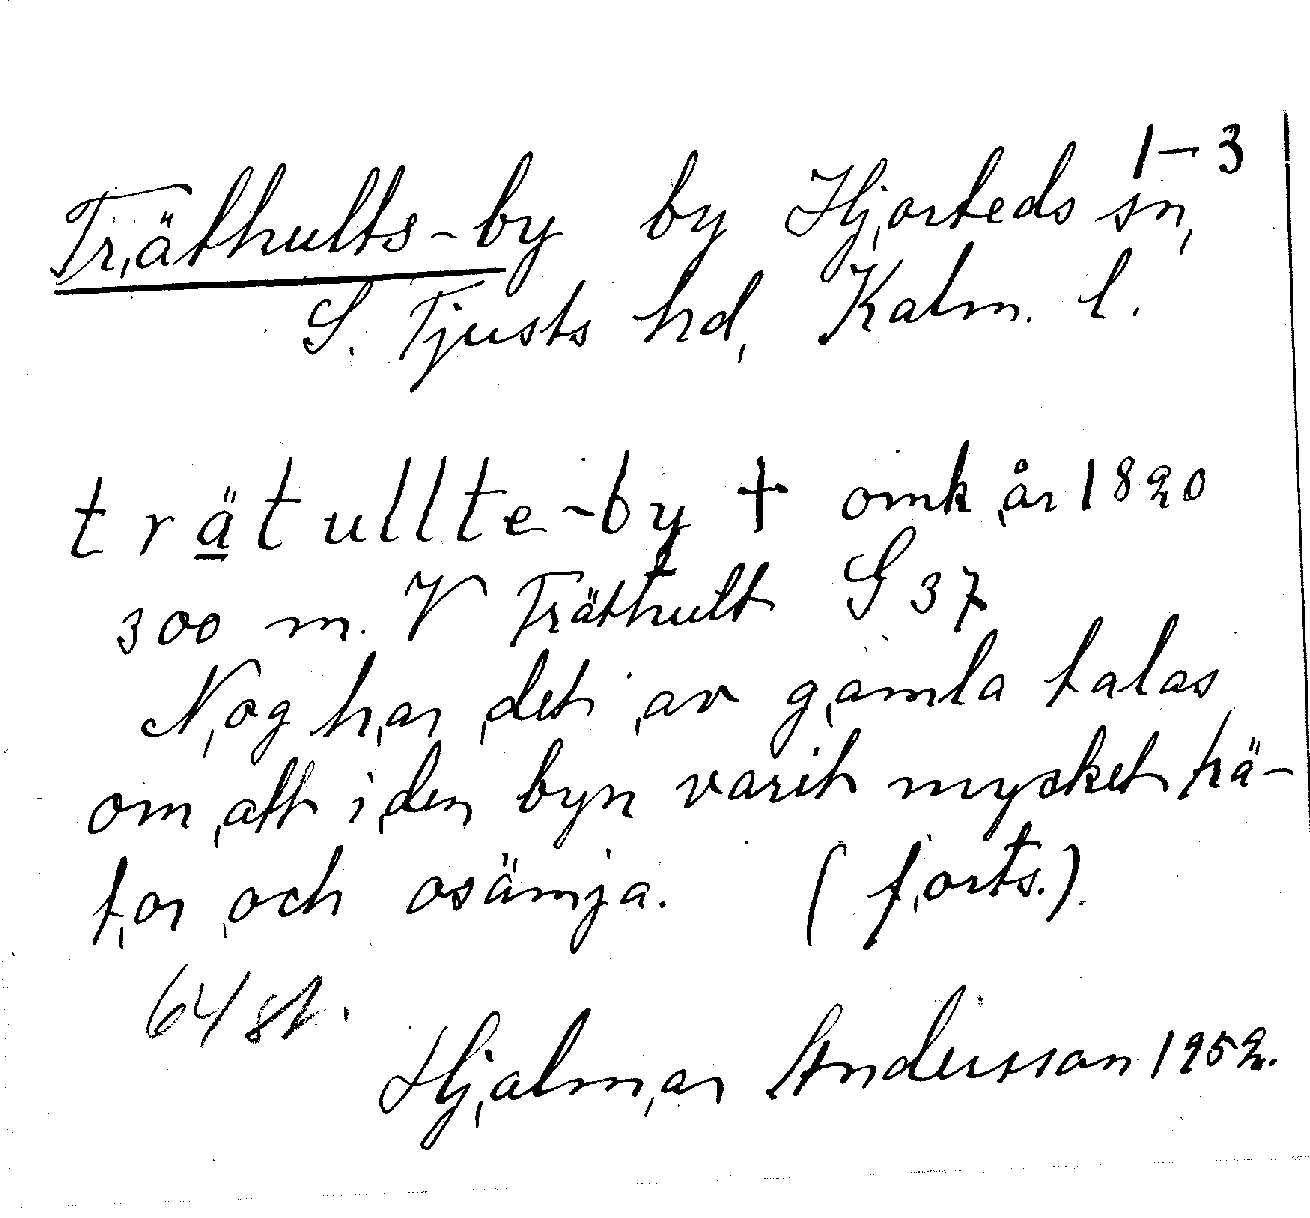 1-3
Träthults-by by Hjorteds sn,
S. Tjusts hd, Kalm. l.
trätullte-by † omk år 1820
300 m. V Träthult G 37
Nog har det av gamla talas
om att i den byn varit mycket trä-
tor och osämja. (forts.)
64 st.
Hjalmar Andersson 1952.